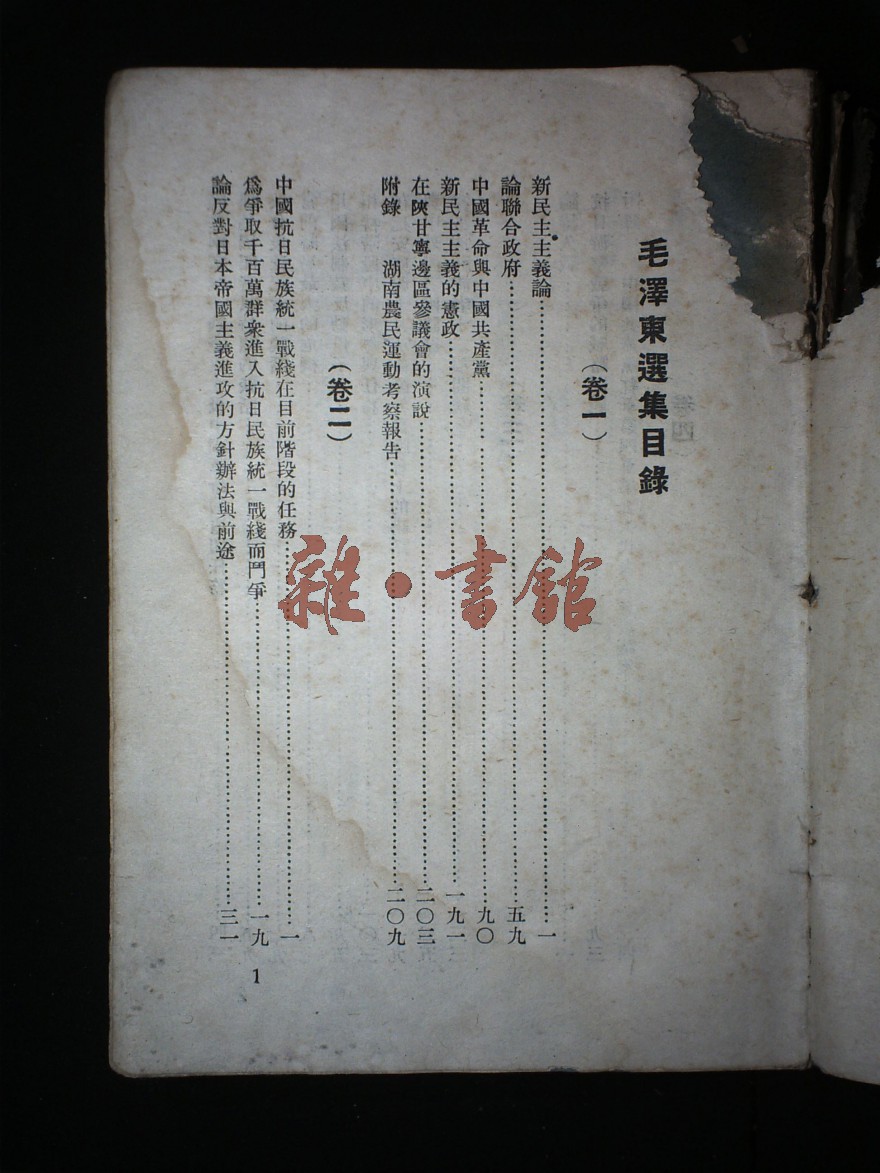 毛澤東選集目錄
（卷一）
新民主主義論……一
論聯合政府……五九
中國革命與中國共產黨……九〇
新民主主義的憲政……一九一
在陝甘寧邊區參議會的演說……二〇三
附錄　湖南農民運動考察報告……二〇九
（卷二）
中國抗日民族統一戰綫在目前階段的任務……一
爲爭取千百萬群衆進入抗日民族統一戰綫而鬥爭……一九
論反對日本帝國主義進攻的方針辦法與前途……三一
1
雜·書館